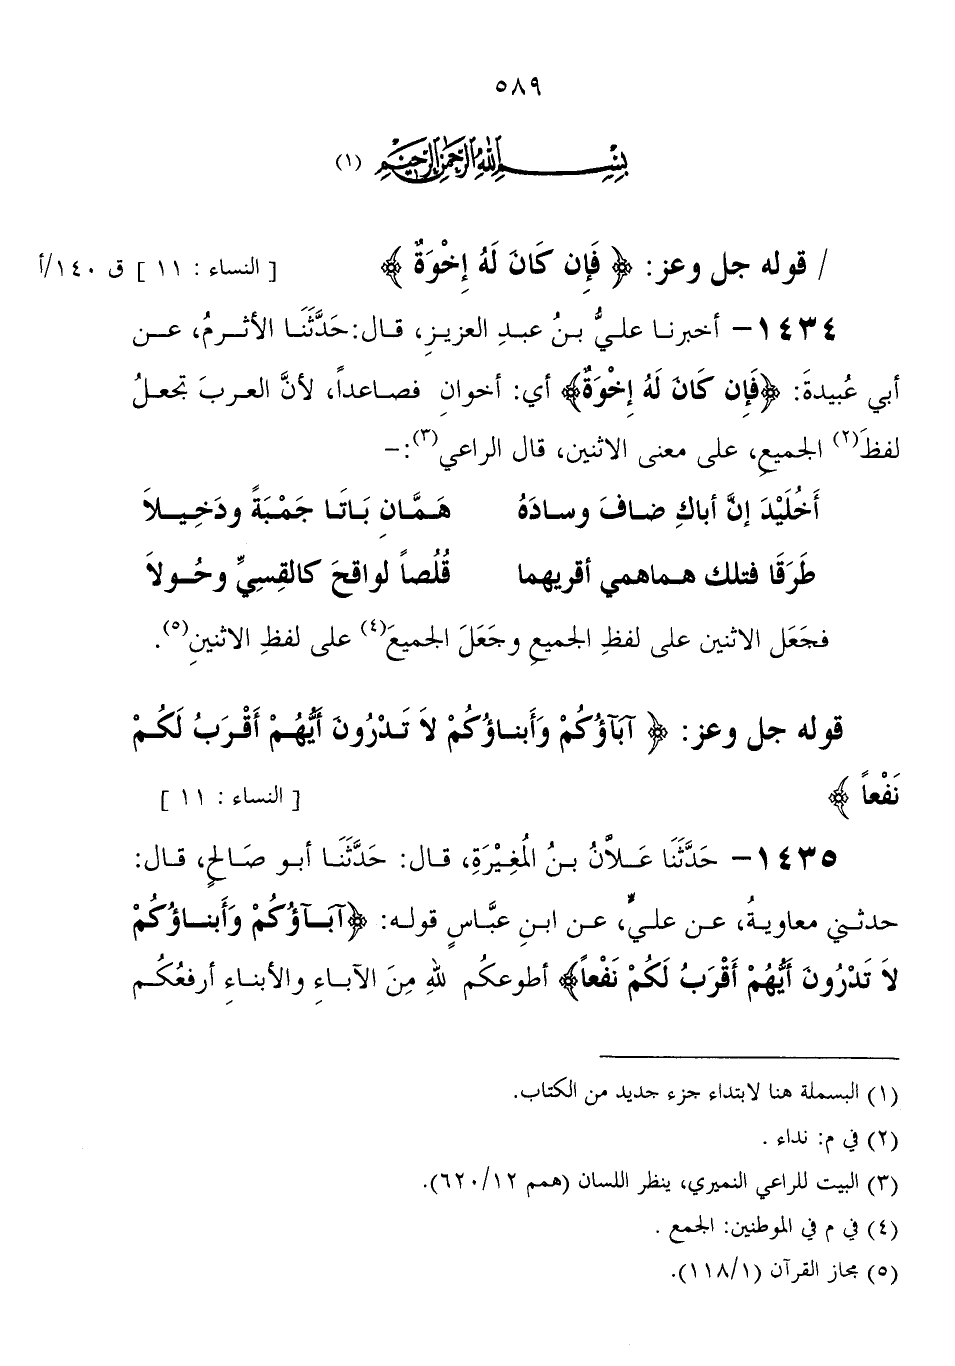 ٥٨٩
بِسْمِ اللهِ الرَّحْمٰنِ الرَّحِيْمِ (١)
/ قوله جل وعز: ﴿ فَإِن كَانَ لَهُ إِخْوَةٌ ﴾ [ النساء : ١١ ] ق ١٤٠/أ
١٤٣٤ – أخبرنا عليُّ بنُ عبدِ العزيزِ، قال: حَدَّثَنَا الأثرمُ، عن
أبي عُبيدةَ: ﴿فَإِن كَانَ لَهُ إِخْوَةٌ﴾ أي: أخوانِ فصاعداً، لأنَّ العربَ تجعلُ
لفظَ(٢) الجميعِ، على معنى الاثنين، قال الراعي(٣):–
أَخُلَيْدَ إنَّ أباكِ ضافَ وسادَهُ هَمَّانِ بَاتَا جَمْبَةً ودَخِيلاَ
طَرَقَا فتلك هماهمي أقريهما قُلُصاً لواقحَ كالقِسِيِّ وحُولاَ
فجَعَل الاثنين على لفظِ الجميعِ وجَعَلَ الجميعَ(٤) على لفظِ الاثنينِ(٥).
قوله جل وعز: ﴿ آبَآؤُكُمْ وَأَبناؤُكُمْ لاَ تَدْرُونَ أَيُّهُمْ أَقْرَبُ لَكُمْ
نَفْعاً ﴾ [ النساء : ١١ ]
١٤٣٥ – حَدَّثَنَا عَلاَّنُ بنُ المُغِيْرَةِ، قال: حَدَّثَنَا أبو صَالحٍ، قال:
حدثني معاويةُ، عن عليٍّ، عن ابنِ عبَّاسٍ قوله: ﴿آبَآؤُكُمْ وَأَبناؤُكُمْ
لاَ تَدْرُونَ أَيُّهُمْ أَقْرَبُ لَكُمْ نَفْعاً﴾ أطوعكُم للهِ مِنَ الآباءِ والأبناءِ أرفعُكُم
(١) البسملة هنا لابتداء جزء جديد من الكتاب.
(٢) في م: نداء .
(٣) البيت للراعي النميري، ينظر اللسان (همم ٦٢٠/١٢).
(٤) في م في الموطنين: الجمع .
(٥) مجاز القرآن (١١٨/١).